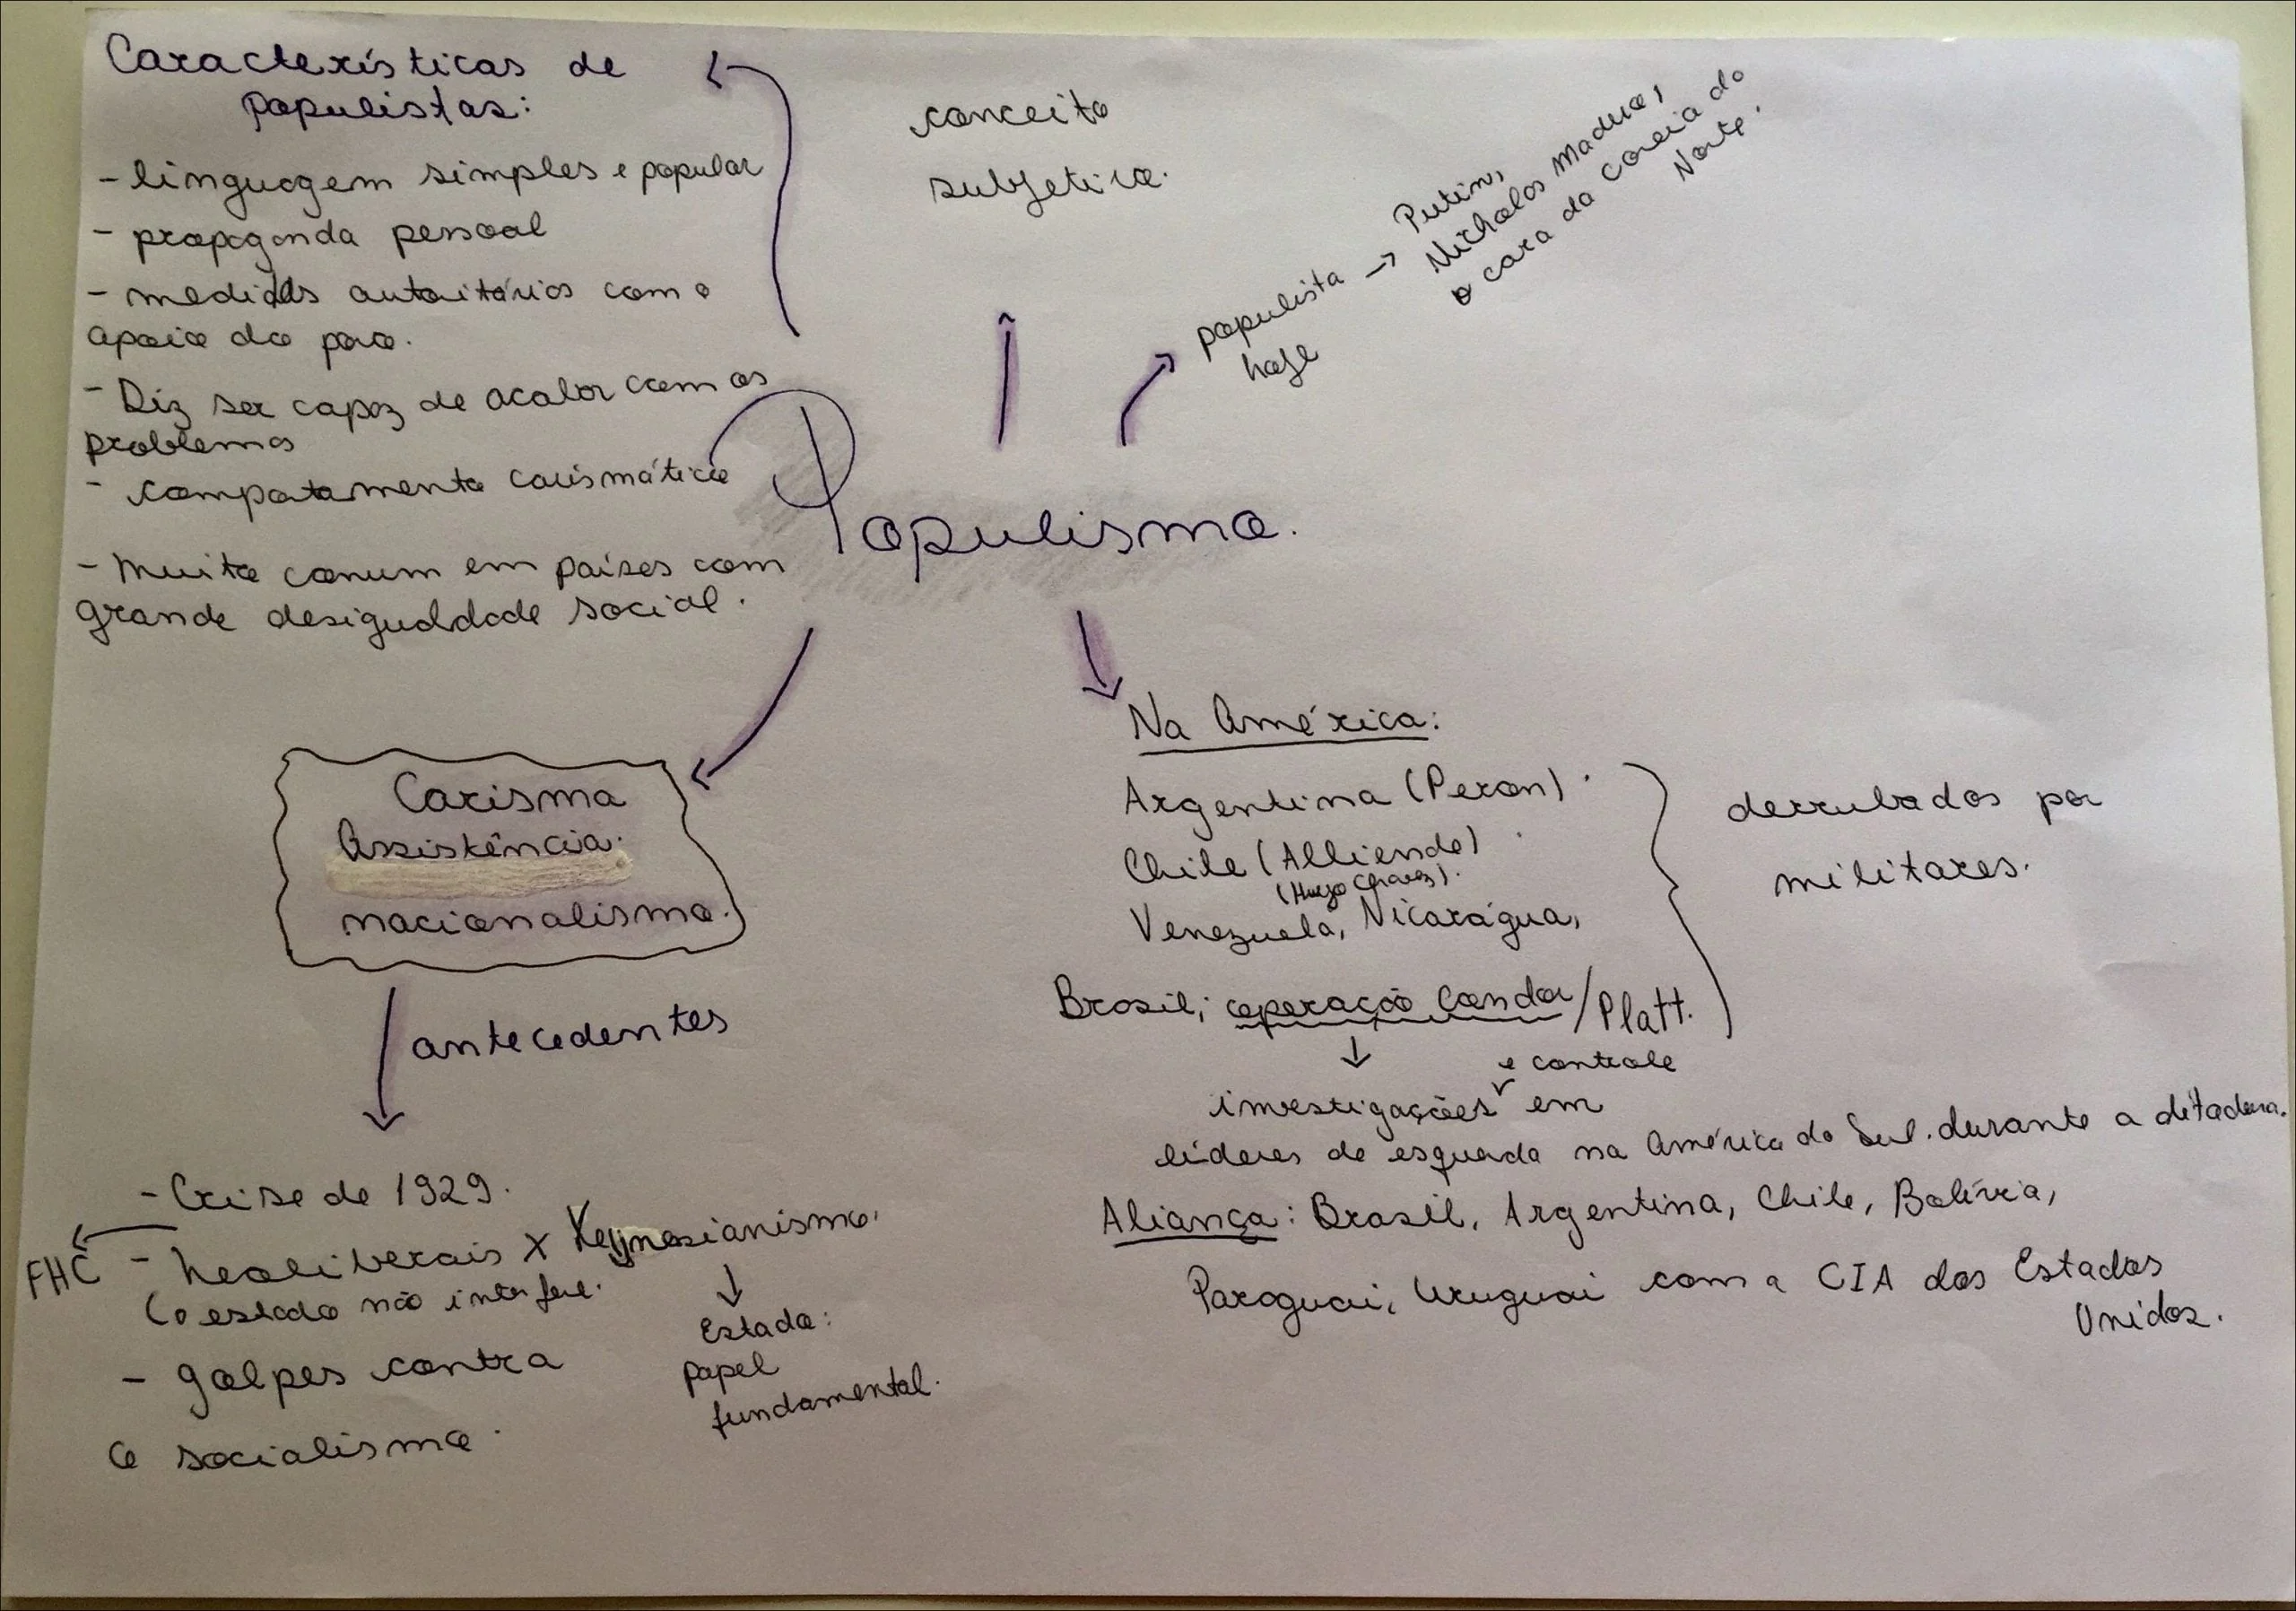 Características de
populistas:
- linguagem simples e popular
- propaganda pessoal
- medidas autoritárias com o
apoio do povo.
- Diz ser capaz de acabar com os
problemas
- comportamento carismático
- Muito comum em países com
grande desigualdade social.
conceito
subjetivo.
populista → Putin,
hoje
Nicholas Maduro,
o cara da Coreia do
Norte.
Populismo.
Carisma
Assistência.
nacionalismo.
antecedentes
- Crise de 1929.
FHC - neoliberais x Keynesianismo.
(o estado não interfere.
Estado:
papel
fundamental.
- golpes contra
o socialismo.
Na América:
Argentina (Peron).
Chile (Alliende).
(Hugo Chavez).
Venezuela, Nicarágua,
Brasil; operação Condor/Platt.
derrubados por
militares.
e controle
investigações em
líderes de esquerda na América do Sul. durante a ditadura.
Aliança: Brasil, Argentina, Chile, Bolívia,
Paraguai, Uruguai com a CIA dos Estados
Unidos.